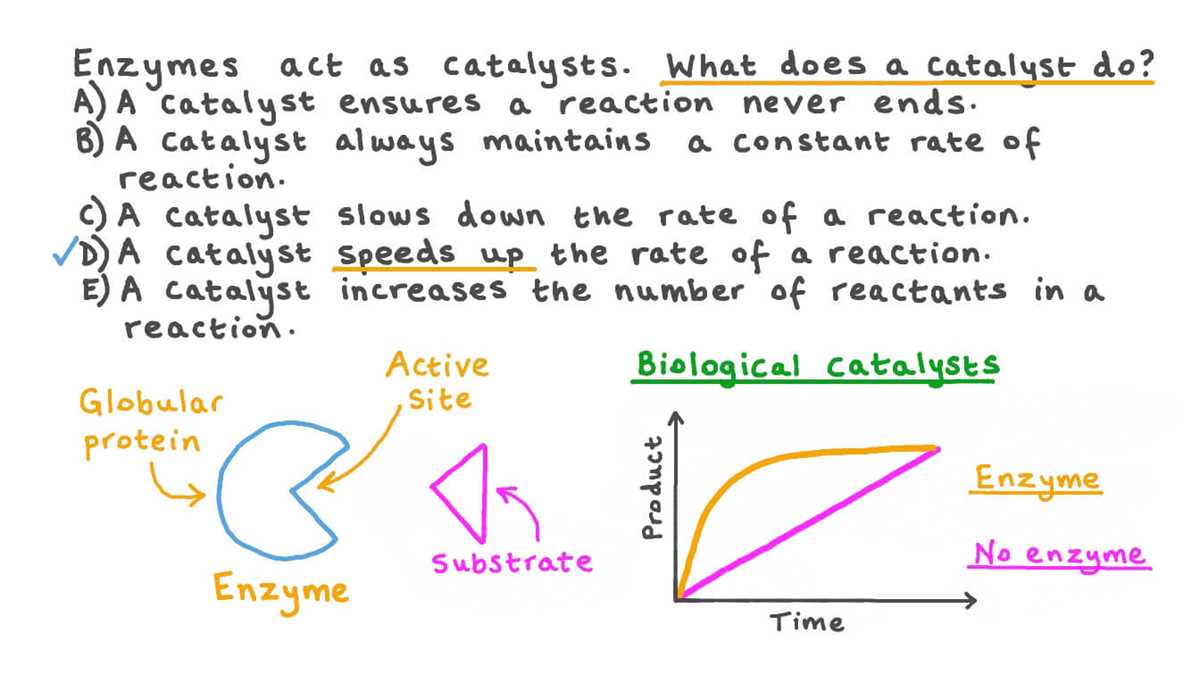 Enzymes act as catalysts. What does a catalyst do?
A) A catalyst ensures a reaction never ends.
B) A catalyst always maintains a constant rate of
reaction.
C) A catalyst slows down the rate of a reaction.
✓D) A catalyst speeds up the rate of a reaction.
E) A catalyst increases the number of reactants in a
reaction.
Globular
protein
Active
site
Enzyme
Substrate
Biological catalysts
Product
Time
Enzyme
No enzyme